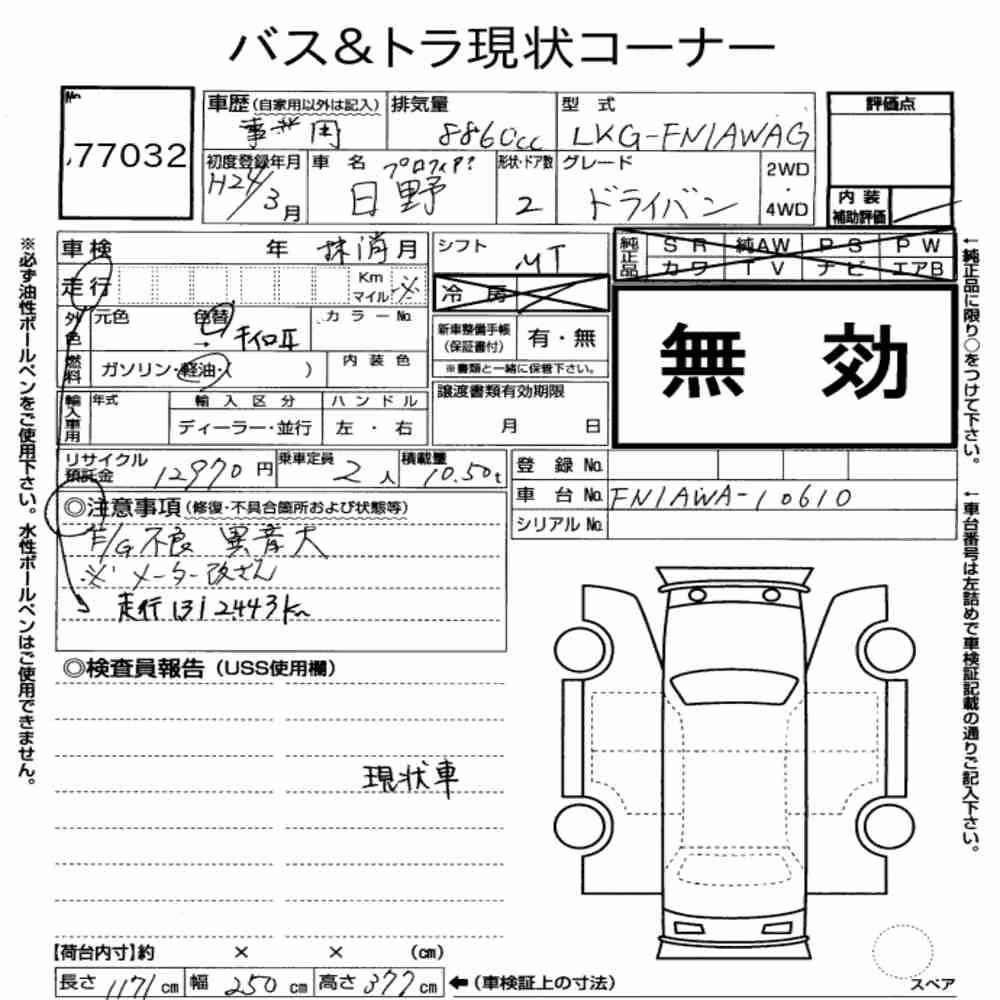 バス&トラ現状コーナー
No. 77032
車歴(自家用以外は記入) 事業用
排気量 8860cc
型式 LKG-FN1AWAG
評価点
初度登録年月 H24/3月
車名 プロフィア 日野
形状・ドア数 2
グレード ドライバン
2WD・4WD
内装補助評価
車検 年 抹消 月
シフト MT
純正品 SR 純AW PS PW
カワ TV ナビ エアB
走行 Km マイル ※
冷房
外色 元色 色替 カラーNo.
新車整備手帳(保証書付) 有・無
※書類と一緒に保管下さい。
無効
燃料 ガソリン・軽油・( )
内装色
譲渡書類有効期限 月 日
輸入車用 年式 輸入区分 ハンドル
ディーラー・並行 左・右
リサイクル預託金 12970円
乗車定員 2人
積載量 10.50t
登録No.
車台No. FN1AWA-10610
シリアルNo.
◎注意事項(修復・不具合箇所および状態等)
E/G不良 異音大
※メーター改ざん
走行1312443Km
◎検査員報告(USS使用欄)
現状車
【荷台内寸】約 × × (cm)
長さ 1171cm 幅 250cm 高さ 377cm ←(車検証上の寸法)
スペア
※必ず油性ボールペンをご使用下さい。水性ボールペンはご使用できません。
←純正品に限り○をつけて下さい。
←車台番号は左詰めで車検証記載の通りご記入下さい。